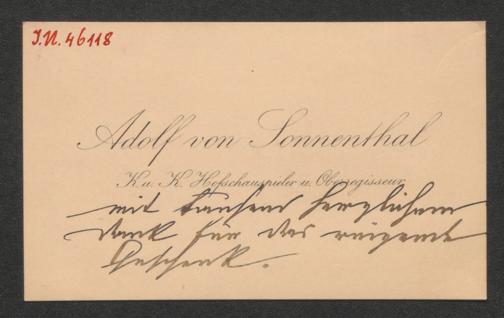 J.N. 46118
Adolf von Sonnenthal
K. u. K. Hofschauspieler u. Oberregisseur
mit tausend herzlichem
Dank für das reizende
Geschenk.